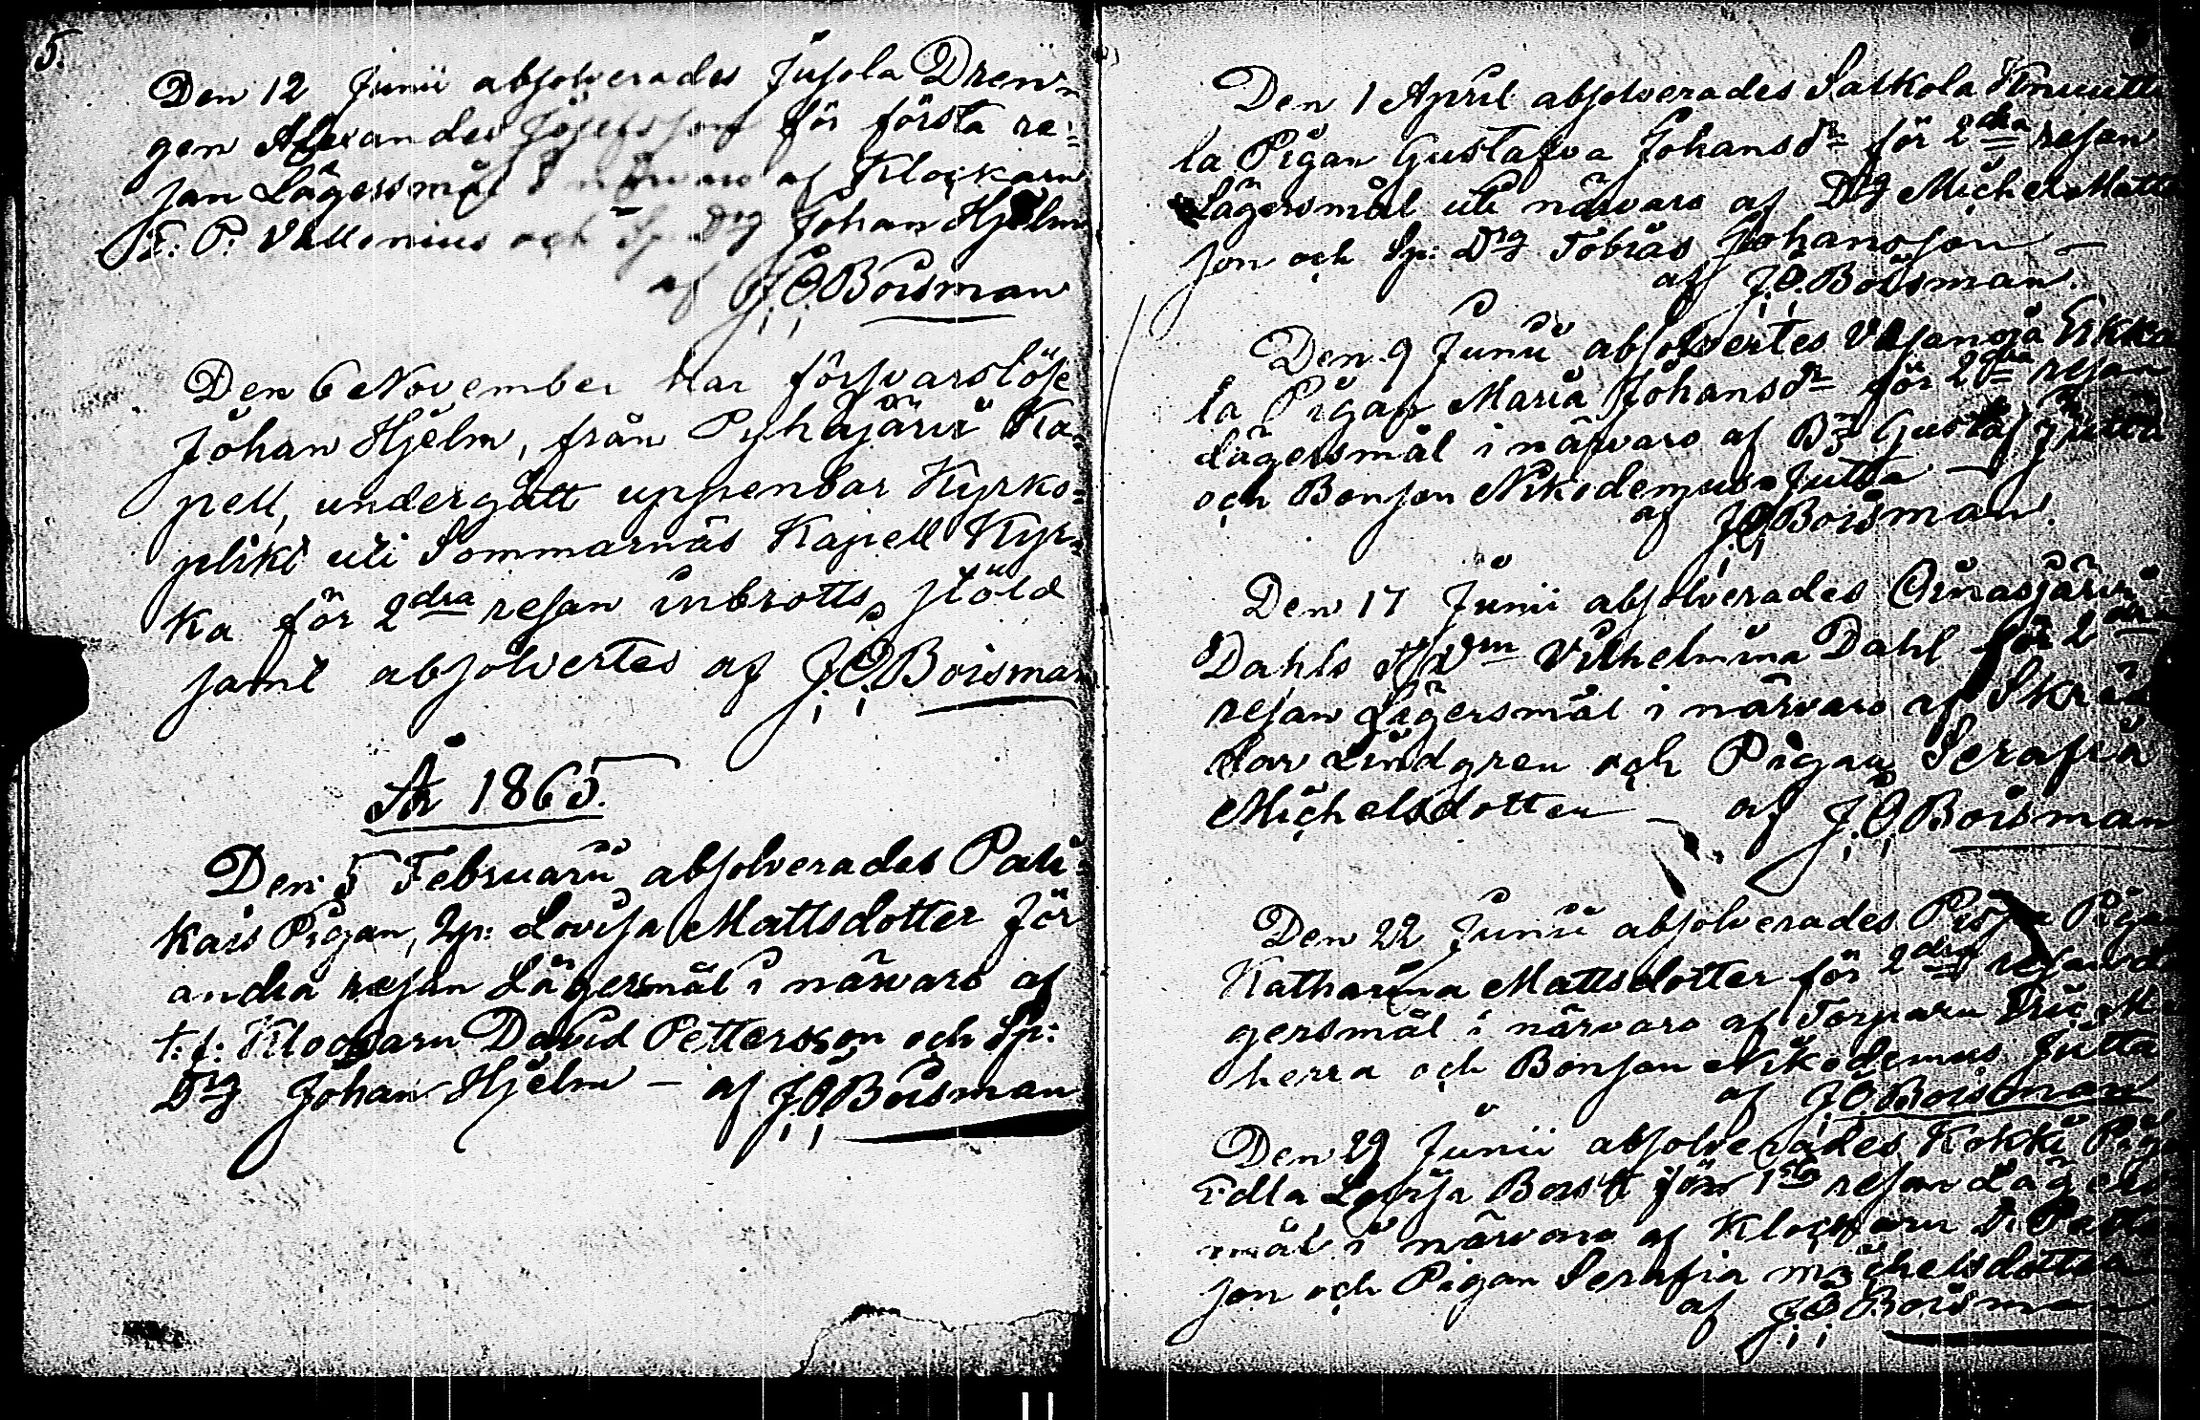 5.
Den 12 Junii absolverades Jusola Dren=
gen Alexander Josefsson för första re=
san Lägersmål i närvaro af Klockarn
F: P: Vallenius och Sp: Drg Johan Hjelm
af J.O.Boisman
Den 6 November har försvarslöse
Johan Hjelm, från Pyhäjärvi Ka=
pell, undergått uppenbar Kyrko=
plikt uti Sommarnäs Kapell Kyr=
ka för 2dra resan inbrotts stöld
samt absolvertes af J.O.Boisman
År 1865.
Den 5 Februarii absolverades Pali=
kais Pigan, Sp: Lovisa Mattsdotter för
andra resan Lägersmål i närvaro af
t.f. Klockarn David Pettersson och Sp:
Drg Johan Hjelm – af J.O.Boisman
Den 1 April absolverades Salkola Knuutti
la Pigan Gustafva Johansdr för 2dra resan
Lägersmål uti närvaro af Drg Michel Matts
son och Sp: Drg Tobias Johansson –
af J.O.Boisman.
Den 9 Junii absolvertes Erkkä
la Pigan Maria Johansdr för 2dra resan
Lägersmål i närvaro af Gustaf Jutta
och Bonson Nikodemus Jutta –
af J.O.Boisman.
Den 17 Junii absolverades Oinasjärvi
Dahls Vilhelmina Dahl för 2dra
resan Lägersmål i närvaro af Skräd
dar Lindgren och Pigan Serafia
Michelsdotter – af J.O.Boisman
Den 22 Junii absolverades Pigan
Katharina Mattsdotter för 2dra resan Lä
gersmål i närvaro af Torparn Eric
herra och Bonson Nikodemus Jutta
af J.O.Boisman
Den 29 Junii absolverades Kokki Piga
Edla Lovisa för 1sta resan Lägers
mål i närvaro af Klockarn D. Petters
son och Pigan Serafia Michelsdotter
af J.O.Boisman